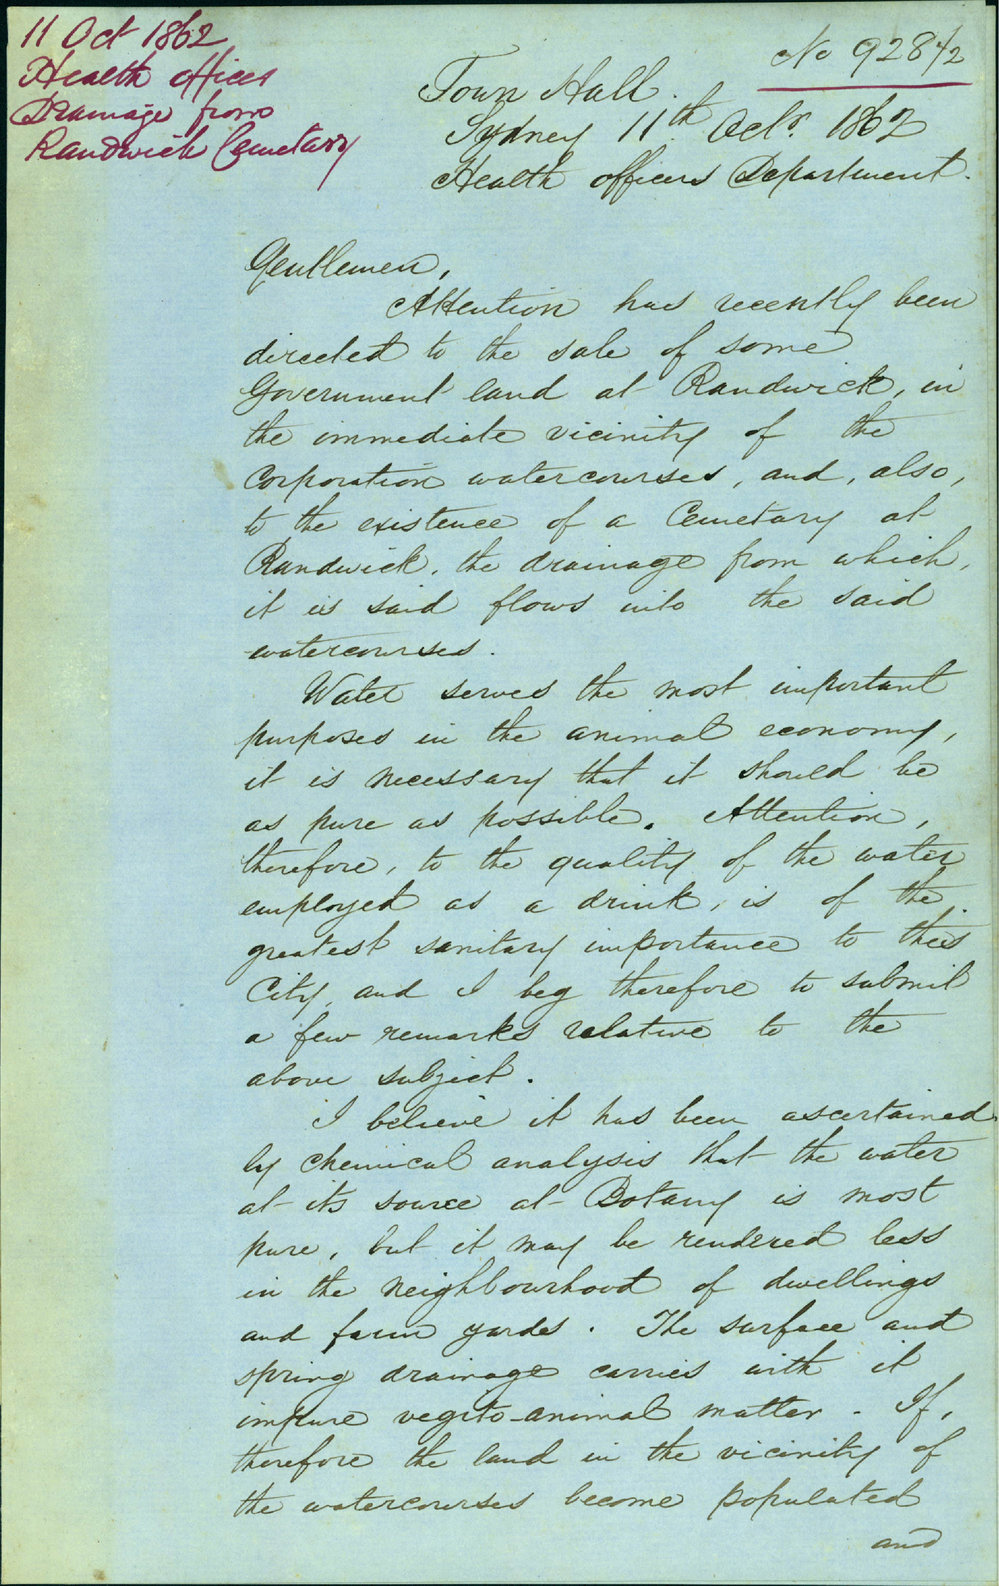 11 Oct 1862
Health officer
Drainage from
Randwick Cemetary
No 928 1/2
Town Hall.
Sydney 11th Octr. 1862
Health officers Department.
Gentlemen,
Attention has recently been
directed to the sale of some
Government land at Randwick, in
the immediate vicinity of the
Corporation watercourses, and, also,
to the existence of a Cemetary at
Randwick, the drainage from which,
it is said flows into the said
watercourses.
Water serves the most important
purposes in the animal economy,
it is necessary that it should be
as pure as possible. Attention,
therefore, to the quality of the water
employed as a drink, is of the
greatest sanitary importance to this
City, and I beg therefore to submit
a few remarks relative to the
above subject.
I believe it has been ascertained
by chemical analysis that the water
at its source at Botany is most
pure, but it may be rendered less
in the neighbourhood of dwellings
and farm yards. The surface and
spring drainage carries with it
impure vegito-animal matter - If,
therefore the land in the vicinity of
the watercourses become populated
and